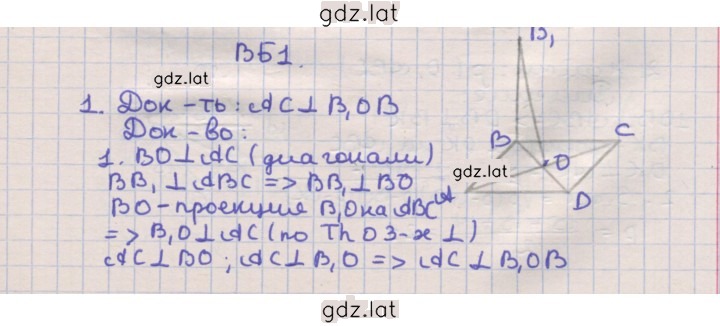 gdz.lat
ВБ1.
gdz.lat
1. Док-ть: AC⊥B₁OB
Док-во:
1. BO⊥AC (диагонали)
BB₁⊥ABC => BB₁⊥BO
BO-проекция B₁O на ABC
=> B₁O⊥AC (по Th О 3-х ⊥)
AC⊥BO; AC⊥B₁O => AC⊥B₁OB
B₁
B
C
O
gdz.lat
A
D
gdz.lat